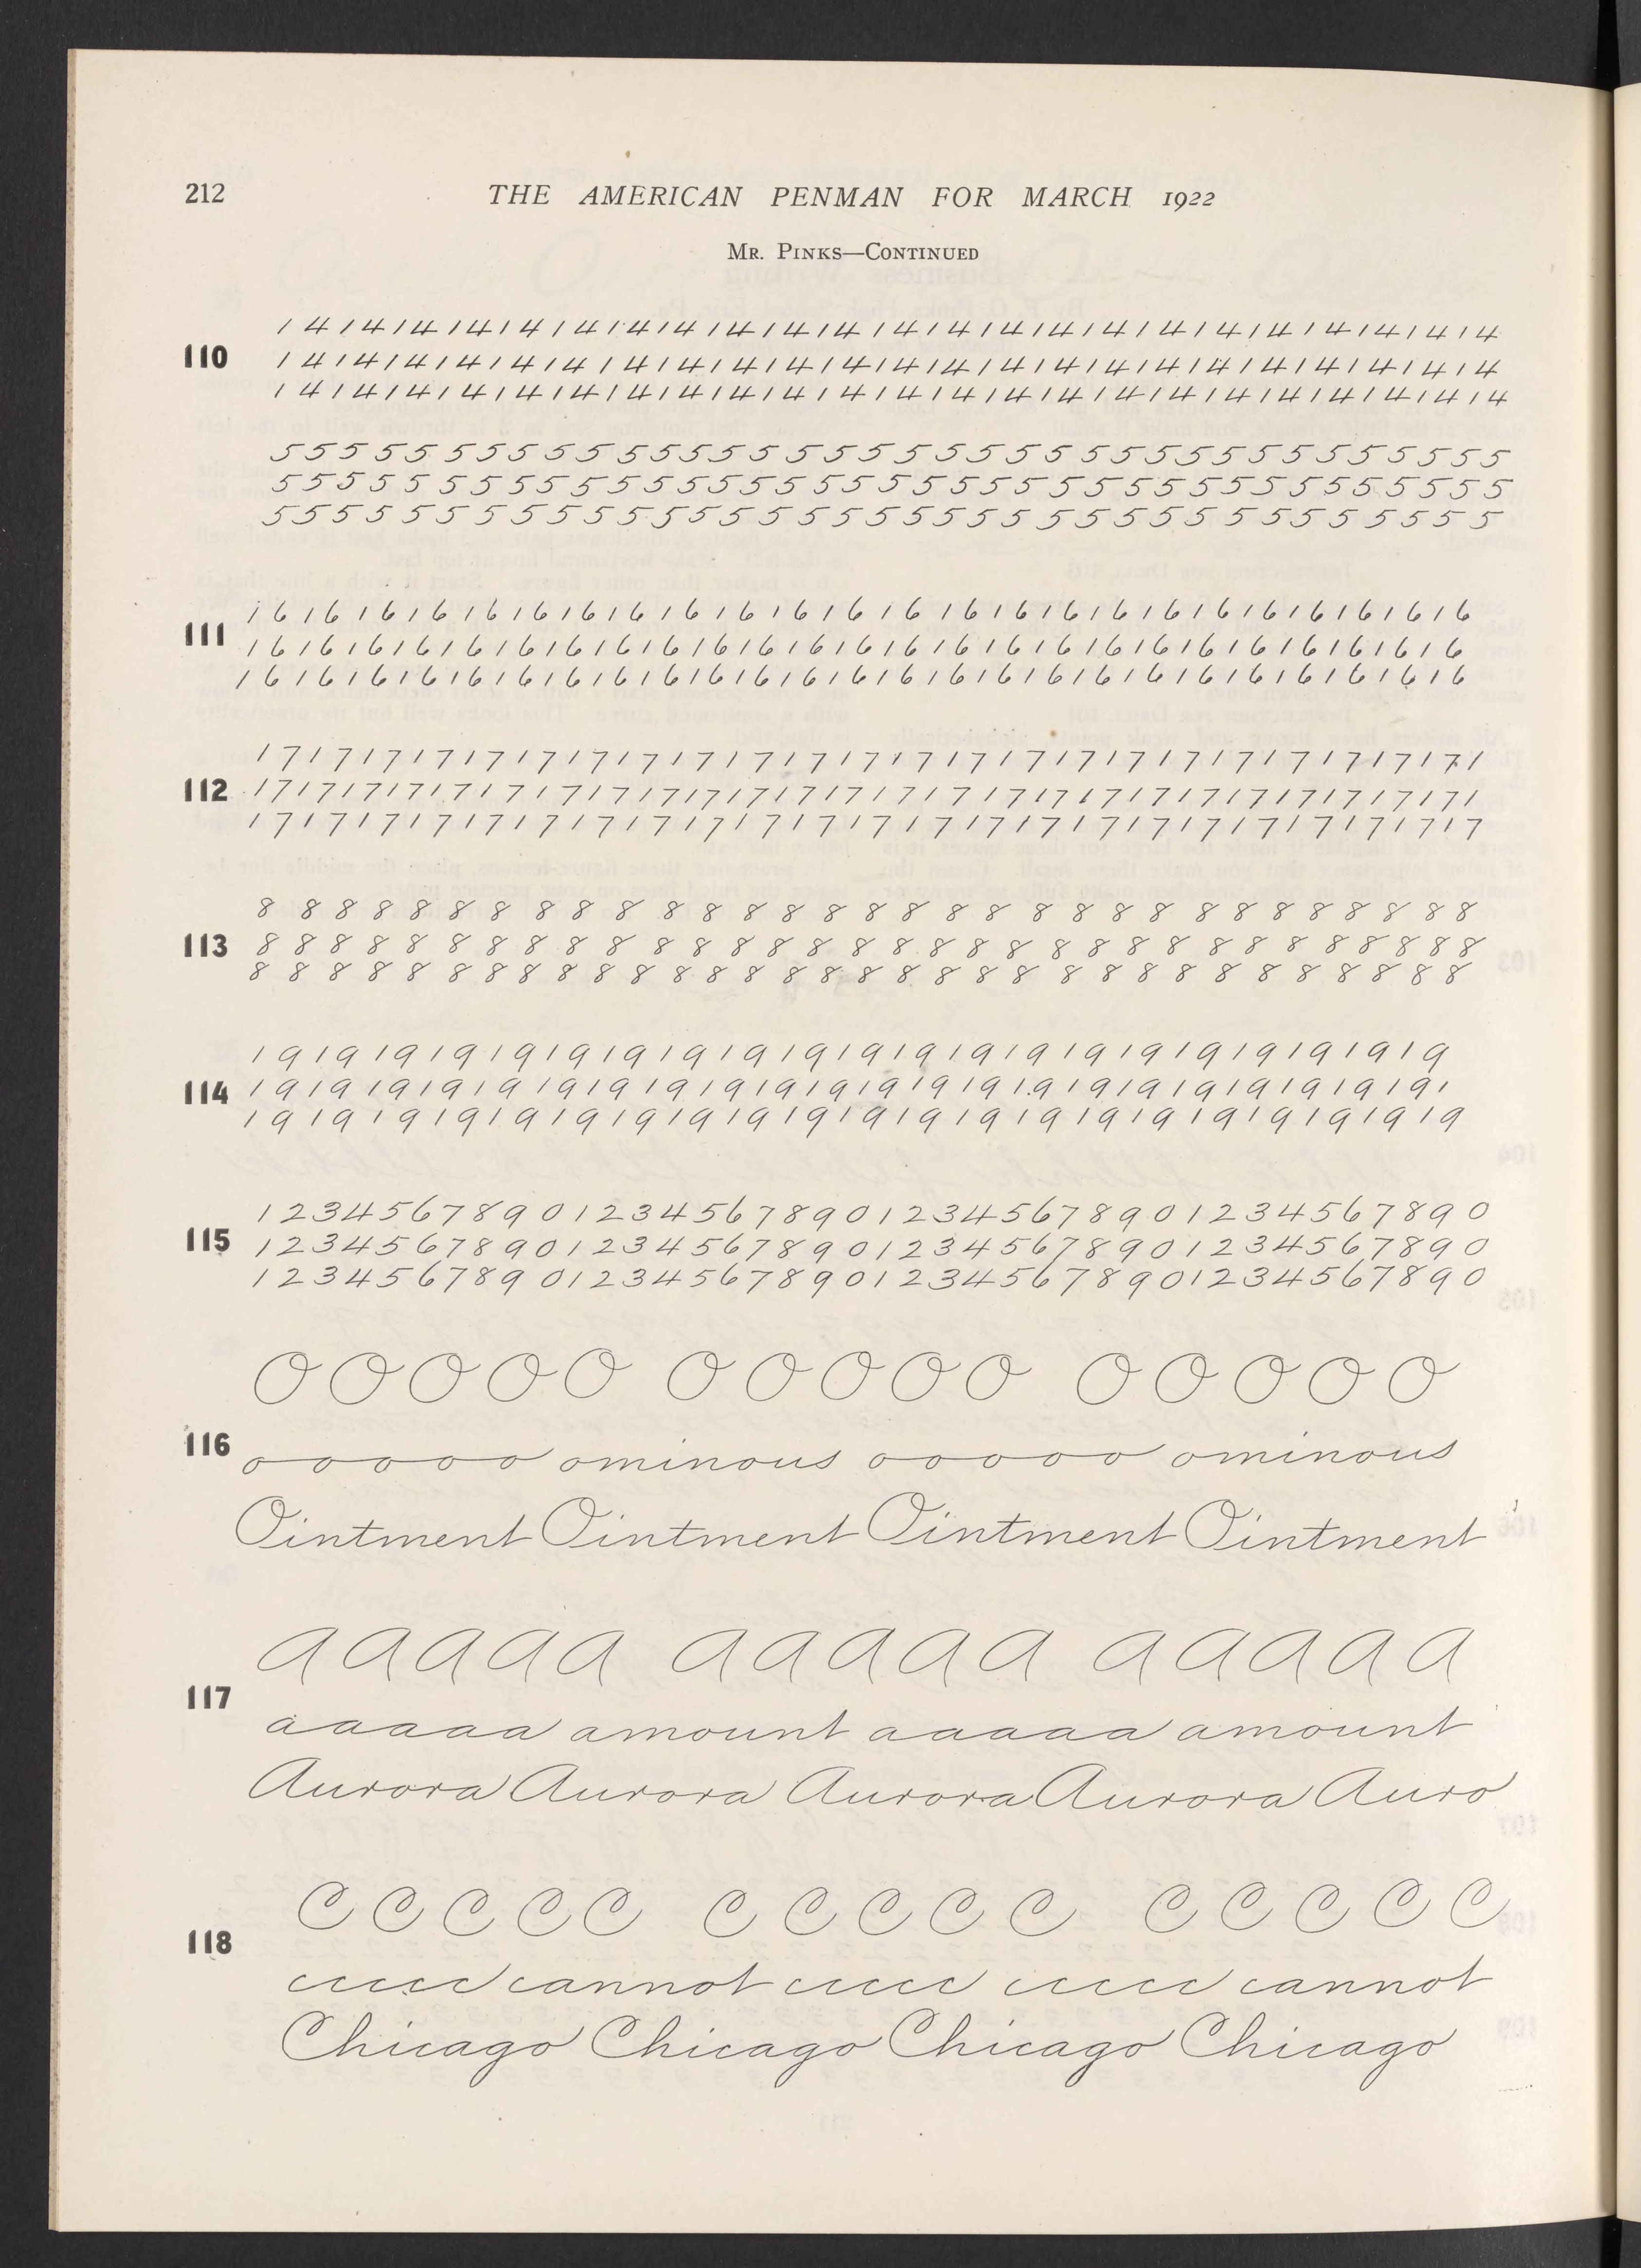 212
THE AMERICAN PENMAN FOR MARCH 1922
MR. PINKS—CONTINUED
110
1 4 1 4 1 4 1 4 1 4 1 4 1 4 1 4 1 4 1 4 1 4 1 4 1 4 1 4 1 4 1 4 1 4 1 4 1 4 1 4 1 4 1 4 1 4
1 4 1 4 1 4 1 4 1 4 1 4 1 4 1 4 1 4 1 4 1 4 1 4 1 4 1 4 1 4 1 4 1 4 1 4 1 4 1 4 1 4 1 4 1 4
1 4 1 4 1 4 1 4 1 4 1 4 1 4 1 4 1 4 1 4 1 4 1 4 1 4 1 4 1 4 1 4 1 4 1 4 1 4 1 4 1 4 1 4 1 4
5 5 5 5 5 5 5 5 5 5 5 5 5 5 5 5 5 5 5 5 5 5 5 5 5 5 5 5 5 5 5 5 5 5 5 5
5 5 5 5 5 5 5 5 5 5 5 5 5 5 5 5 5 5 5 5 5 5 5 5 5 5 5 5 5 5 5 5 5 5 5 5 5
5 5 5 5 5 5 5 5 5 5 5 5 5 5 5 5 5 5 5 5 5 5 5 5 5 5 5 5 5 5 5 5 5 5 5
111
1 6 1 6 1 6 1 6 1 6 1 6 1 6 1 6 1 6 1 6 1 6 1 6 1 6 1 6 1 6 1 6 1 6 1 6 1 6 1 6 1 6 1 6 1 6 1 6
1 6 1 6 1 6 1 6 1 6 1 6 1 6 1 6 1 6 1 6 1 6 1 6 1 6 1 6 1 6 1 6 1 6 1 6 1 6 1 6 1 6 1 6 1 6 1 6 1 6
1 6 1 6 1 6 1 6 1 6 1 6 1 6 1 6 1 6 1 6 1 6 1 6 1 6 1 6 1 6 1 6 1 6 1 6 1 6 1 6 1 6 1 6 1 6 1 6 1 6
112
1 7 1 7 1 7 1 7 1 7 1 7 1 7 1 7 1 7 1 7 1 7 1 7 1 7 1 7 1 7 1 7 1 7 1 7 1 7 1 7 1 7 1 7 1 7 1
1 7 1 7 1 7 1 7 1 7 1 7 1 7 1 7 1 7 1 7 1 7 1 7 1 7 1 7 1 7 1 7 1 7 1 7 1 7 1 7 1 7 1 7 1 7 1 7 1 7 1
1 7 1 7 1 7 1 7 1 7 1 7 1 7 1 7 1 7 1 7 1 7 1 7 1 7 1 7 1 7 1 7 1 7 1 7 1 7 1 7 1 7 1 7 1 7
113
8 8 8 8 8 8 8 8 8 8 8 8 8 8 8 8 8 8 8 8 8 8 8 8 8 8 8 8 8 8 8
8 8 8 8 8 8 8 8 8 8 8 8 8 8 8 8 8 8 8 8 8 8 8 8 8 8 8 8 8 8 8 8
8 8 8 8 8 8 8 8 8 8 8 8 8 8 8 8 8 8 8 8 8 8 8 8 8 8 8 8 8 8 8 8
114
1 9 1 9 1 9 1 9 1 9 1 9 1 9 1 9 1 9 1 9 1 9 1 9 1 9 1 9 1 9 1 9 1 9 1 9 1 9 1 9 1 9
1 9 1 9 1 9 1 9 1 9 1 9 1 9 1 9 1 9 1 9 1 9 1 9 1 9 1 9 1 9 1 9 1 9 1 9 1 9 1 9 1 9 1 9 1
1 9 1 9 1 9 1 9 1 9 1 9 1 9 1 9 1 9 1 9 1 9 1 9 1 9 1 9 1 9 1 9 1 9 1 9 1 9 1 9 1 9
115
1 2 3 4 5 6 7 8 9 0 1 2 3 4 5 6 7 8 9 0 1 2 3 4 5 6 7 8 9 0 1 2 3 4 5 6 7 8 9 0
1 2 3 4 5 6 7 8 9 0 1 2 3 4 5 6 7 8 9 0 1 2 3 4 5 6 7 8 9 0 1 2 3 4 5 6 7 8 9 0
1 2 3 4 5 6 7 8 9 0 1 2 3 4 5 6 7 8 9 0 1 2 3 4 5 6 7 8 9 0 1 2 3 4 5 6 7 8 9 0
O O O O O O O O O O O O O O O
116
o o o o o ominous o o o o o ominous
Ointment Ointment Ointment Ointment
A A A A A A A A A A A A A A A
117
a a a a a amount a a a a a amount
Aurora Aurora Aurora Aurora Auro
C C C C C C C C C C C C C C C
118
c c c c c cannot c c c c c c c c c c cannot
Chicago Chicago Chicago Chicago